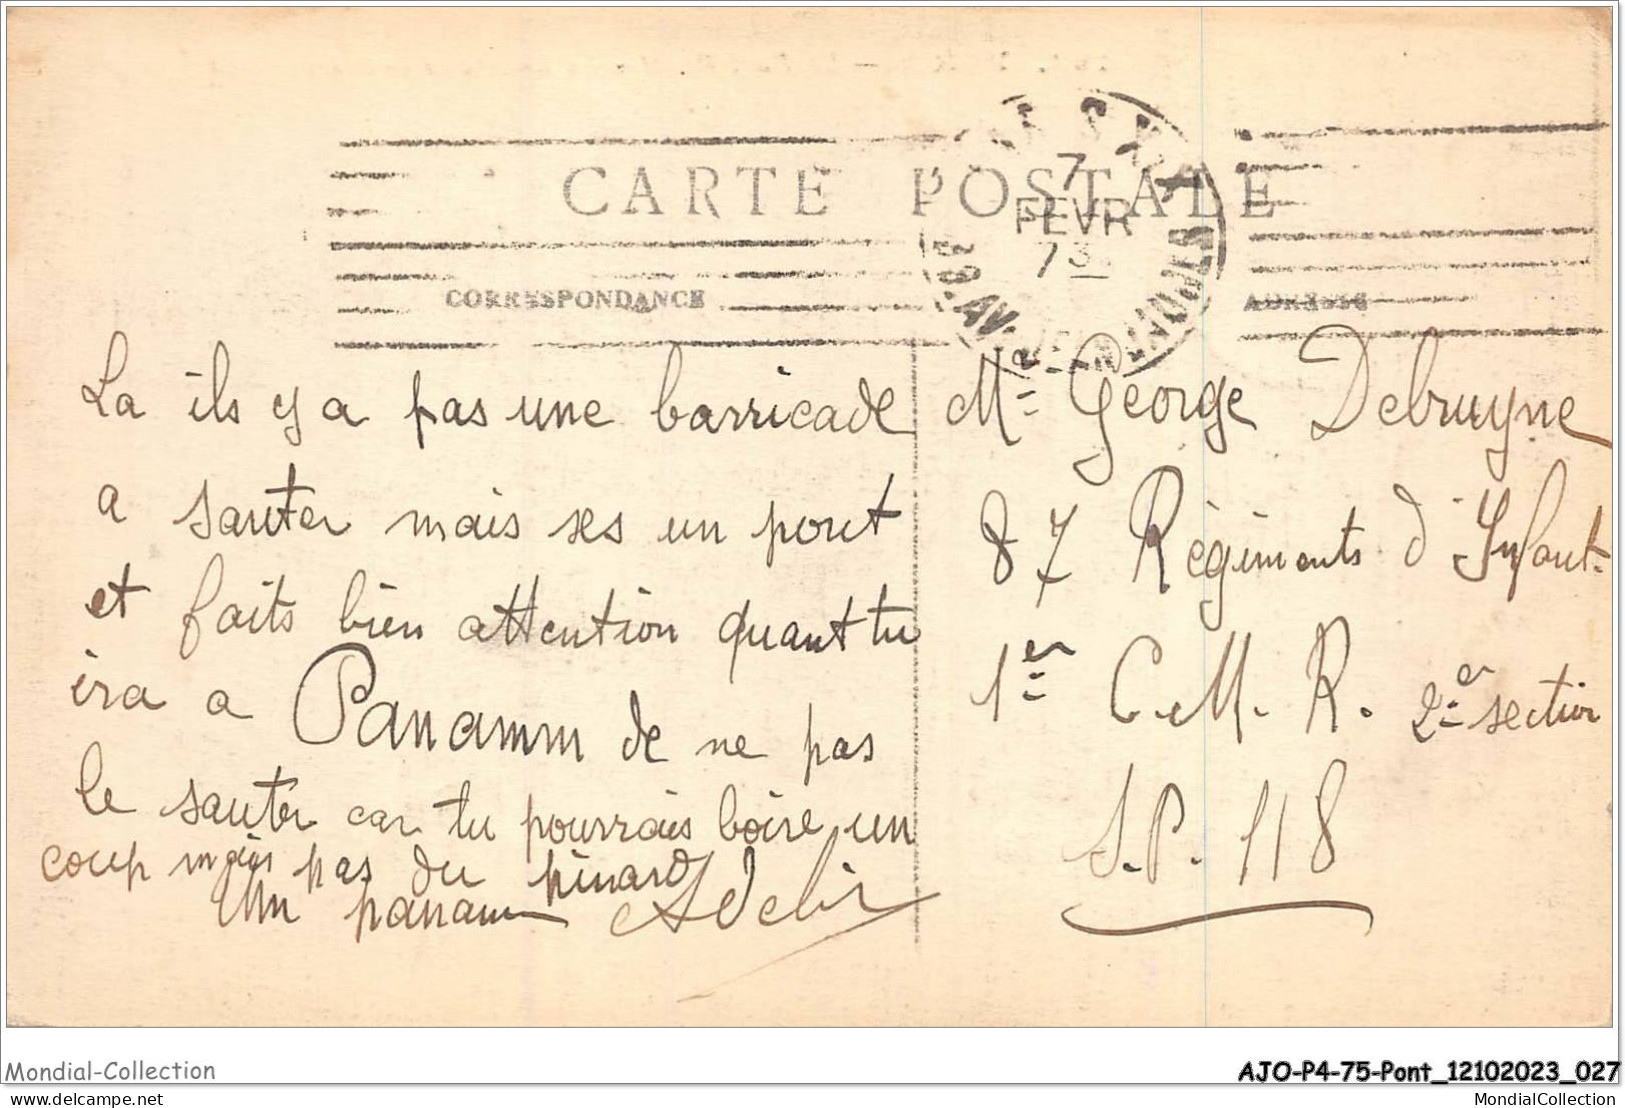 CARTE POSTALE
7
FEVR
CORRESPONDANCE
ADRESSE
La ils y a pas une barricade
a sauter mais ses un pont
et faits bien attention quant tu
ira a Panamm de ne pas
le sauter car tu pourrais boire un
coup mais pas du pinard
Un panam
Mr George Debruyne
87 Régiments d'Infant.
1er C.M.R. 2er section
S.P. 118
Mondial-Collection
delcampe.net
AJO-P4-75-Pont_12102023_027
MondialCollection